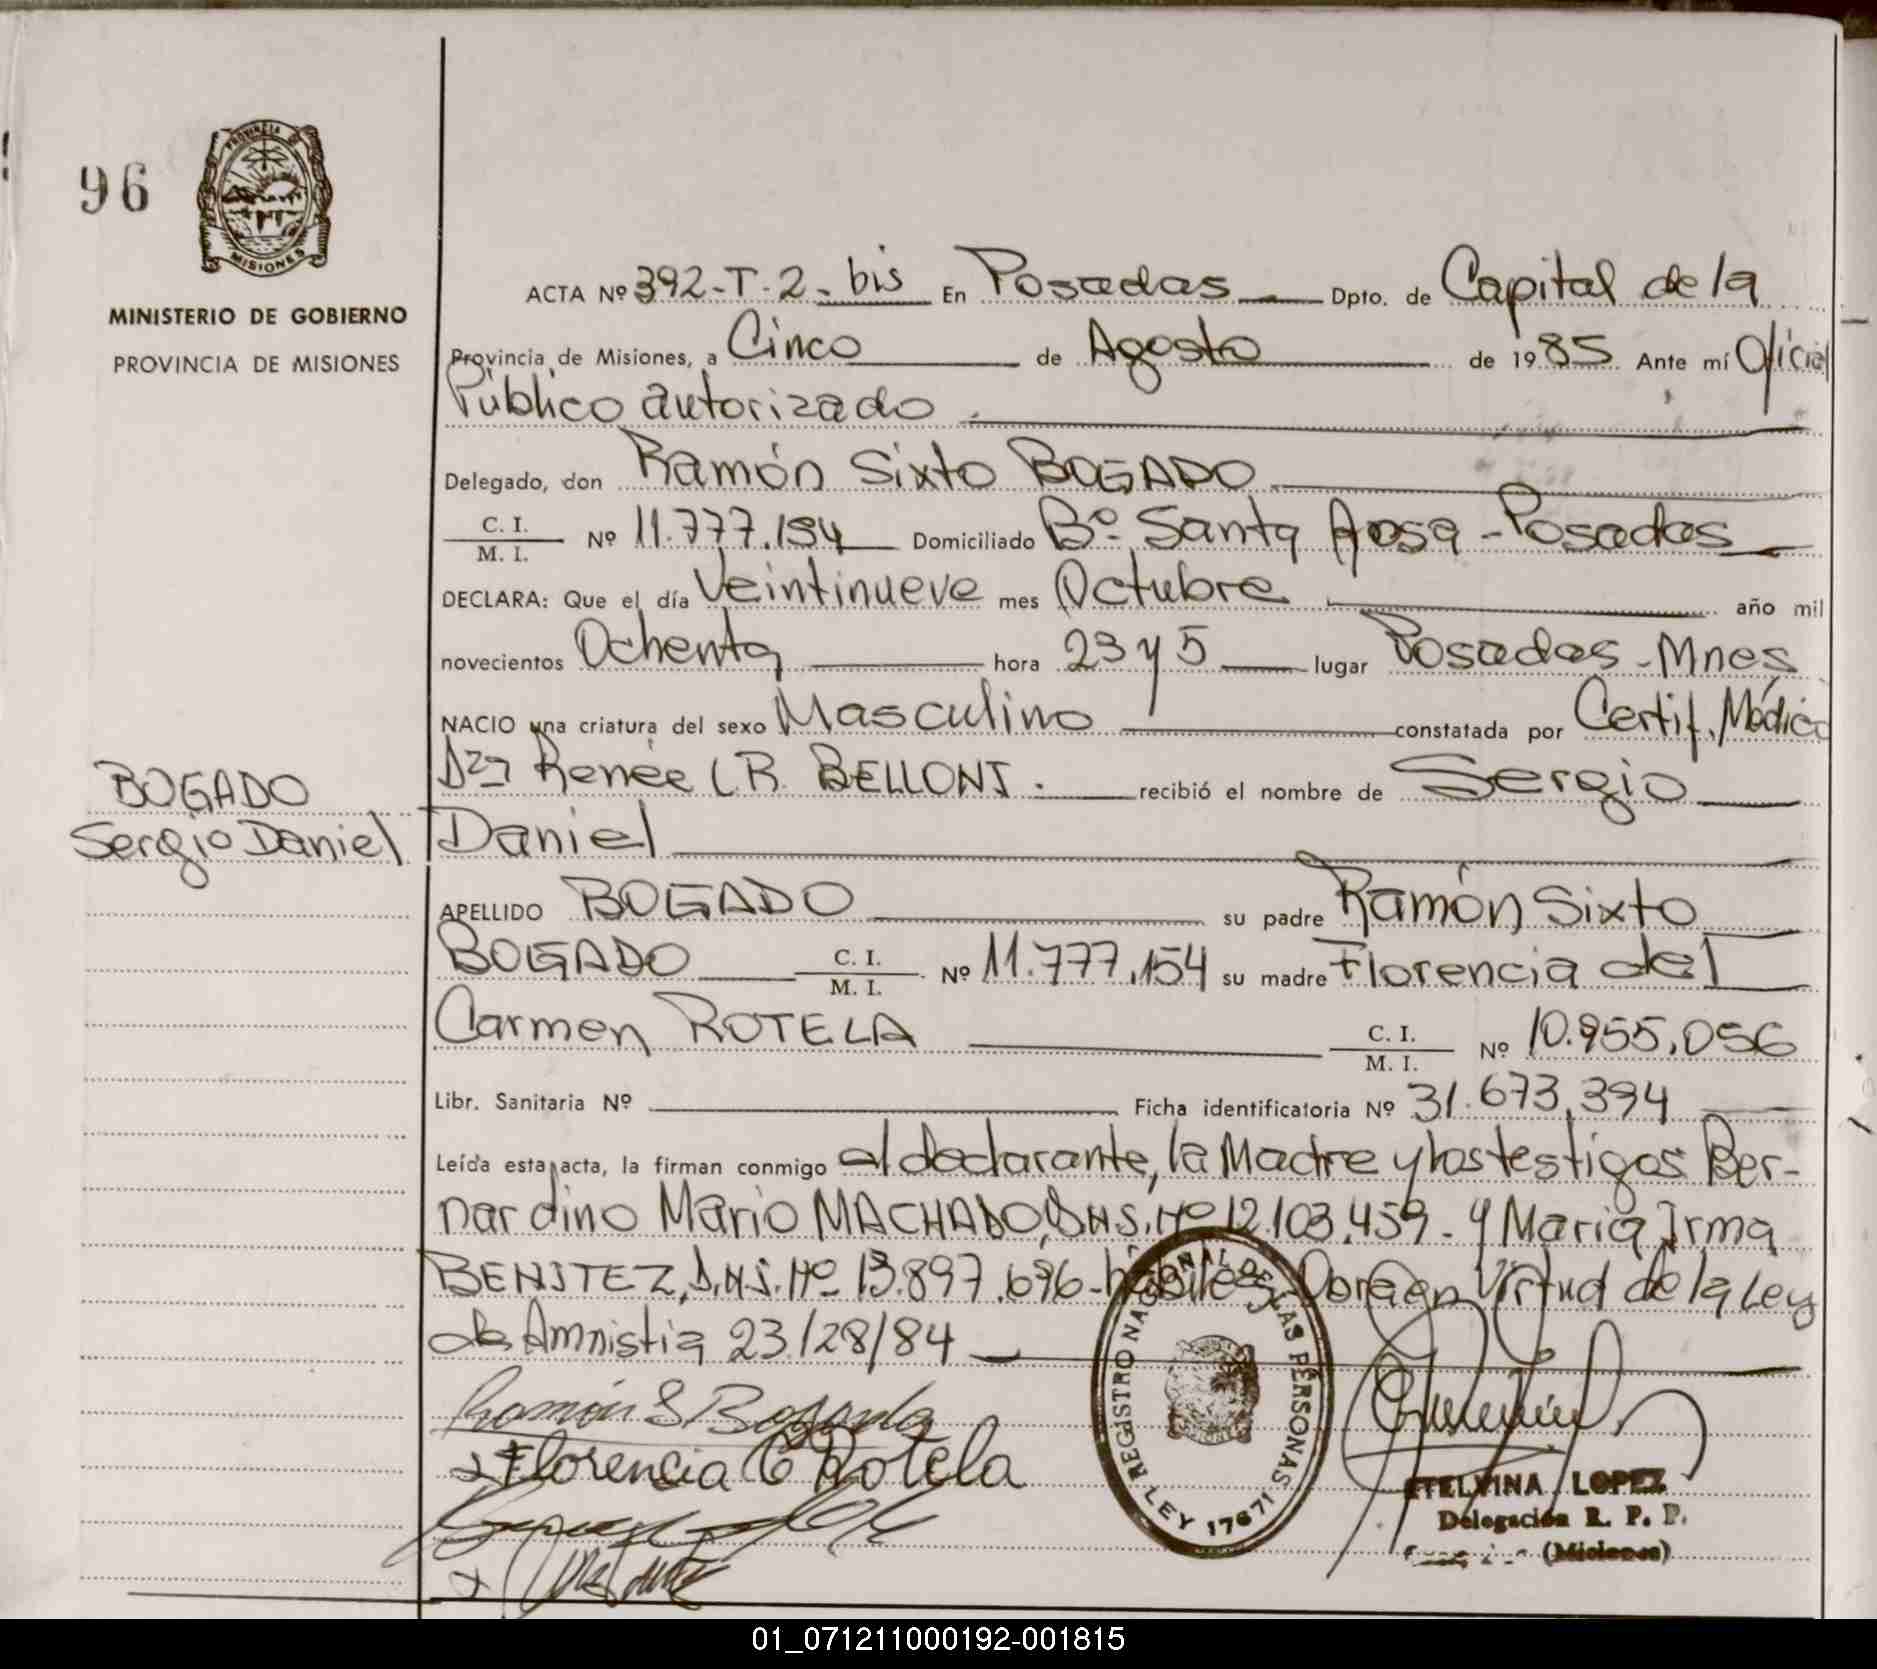 96
PROVINCIA DE
MISIONES
MINISTERIO DE GOBIERNO
PROVINCIA DE MISIONES
ACTA Nº 392-T-2-bis En Posadas Dpto. de Capital de la
Provincia de Misiones, a Cinco de Agosto de 1985 Ante mí Oficial
Público autorizado
Delegado, don Ramón Sixto BOGADO
C. I.
M. I. Nº 11.777.154 Domiciliado Bº Santa Rosa - Posadas
DECLARA: Que el día Veintinueve mes Octubre año mil
novecientos Ochenta hora 23 y 5 lugar Posadas - Mnes
NACIO una criatura del sexo Masculino constatada por Certif. Médico
Dra Renée R. BELLONI. recibió el nombre de Sergio
Daniel
BOGADO
Sergio Daniel
APELLIDO BOGADO su padre Ramón Sixto
BOGADO C. I.
M. I. Nº 11.777.154 su madre Florencia del
Carmen ROTELA C. I.
M. I. Nº 10.955.056
Libr. Sanitaria Nº Ficha identificatoria Nº 31.673.394
Leída esta acta, la firman conmigo el declarante, la Madre y los testigos Ber-
nardino Mario MACHADO, D.N.I. Nº 12.103.459 - y Maria Irma
BENITEZ, D.N.I. Nº 13.897.696 - hábiles - Obra en Virtud de la Ley
de Amnistia 23/28/84
Ramón S Bogado
Florencia C Rotela
REGISTRO NACIONAL DE LAS PERSONAS
LEY 17671
ETELVINA LOPEZ
Delegación R. P. P.
(Misiones)
01_071211000192-001815